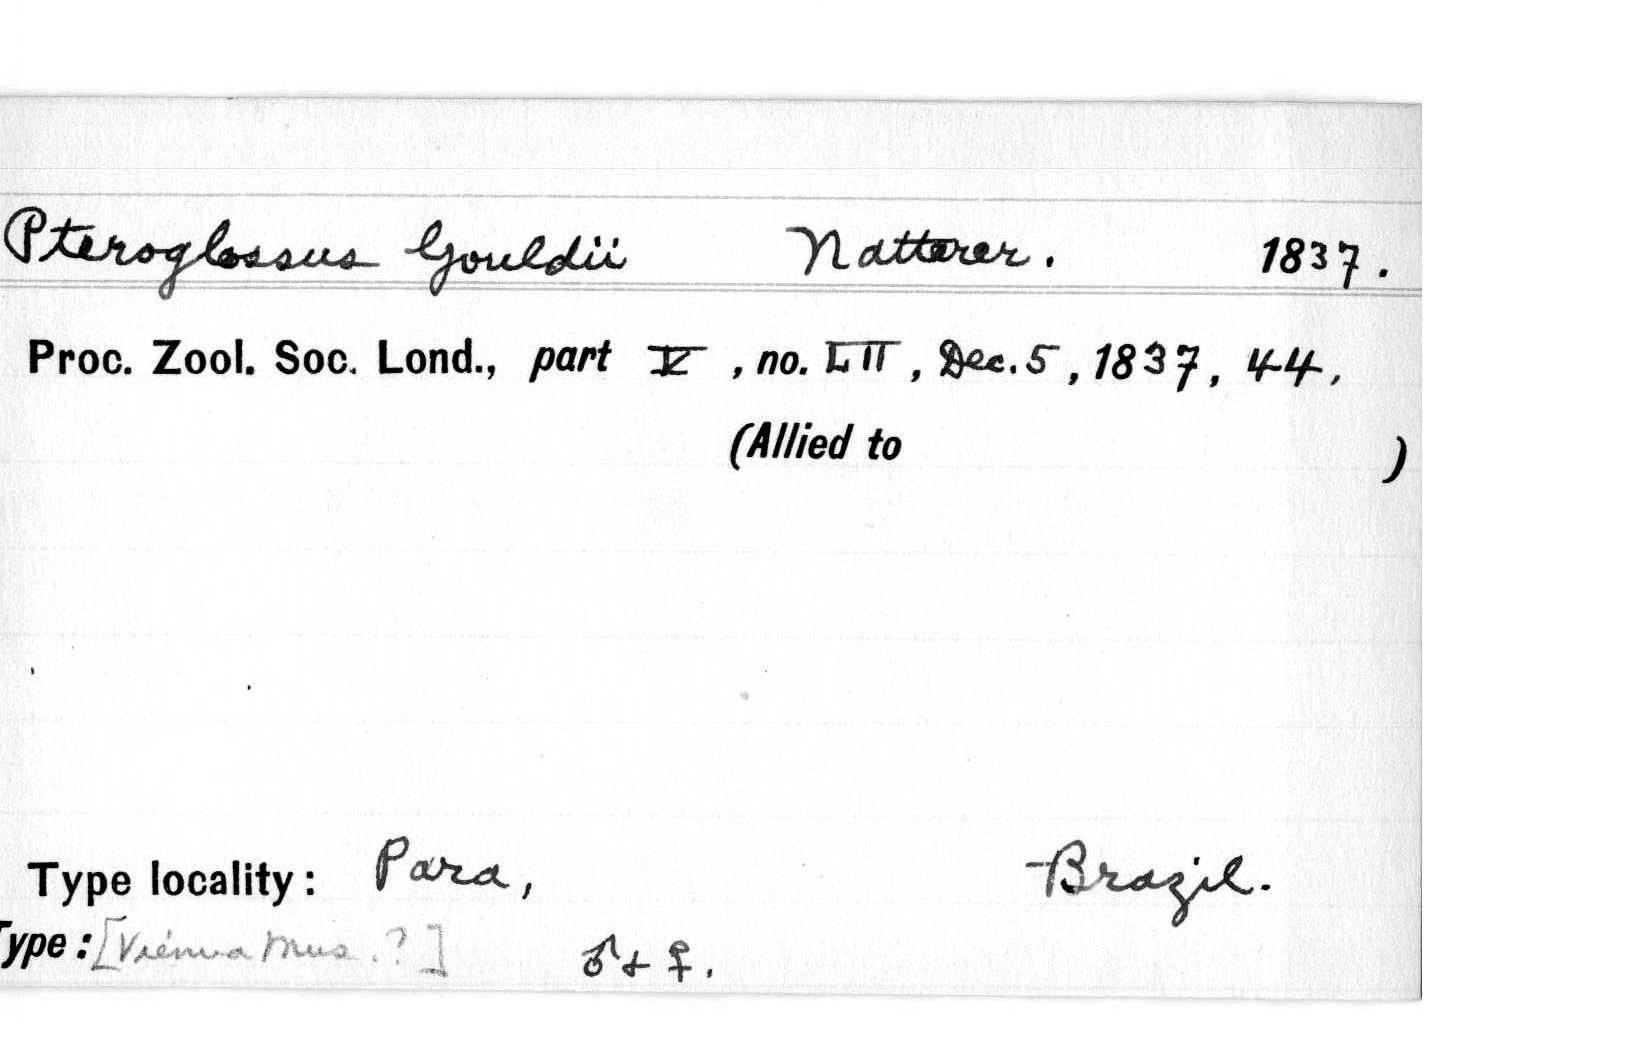 Pteroglossus Gouldii Natterer. 1837.
Proc. Zool. Soc. Lond., part V, no. LII, Dec. 5, 1837, 44,
(Allied to )
Type locality: Para, Brazil.
Type: [Vienna Mus. ?] ♂ & ♀.